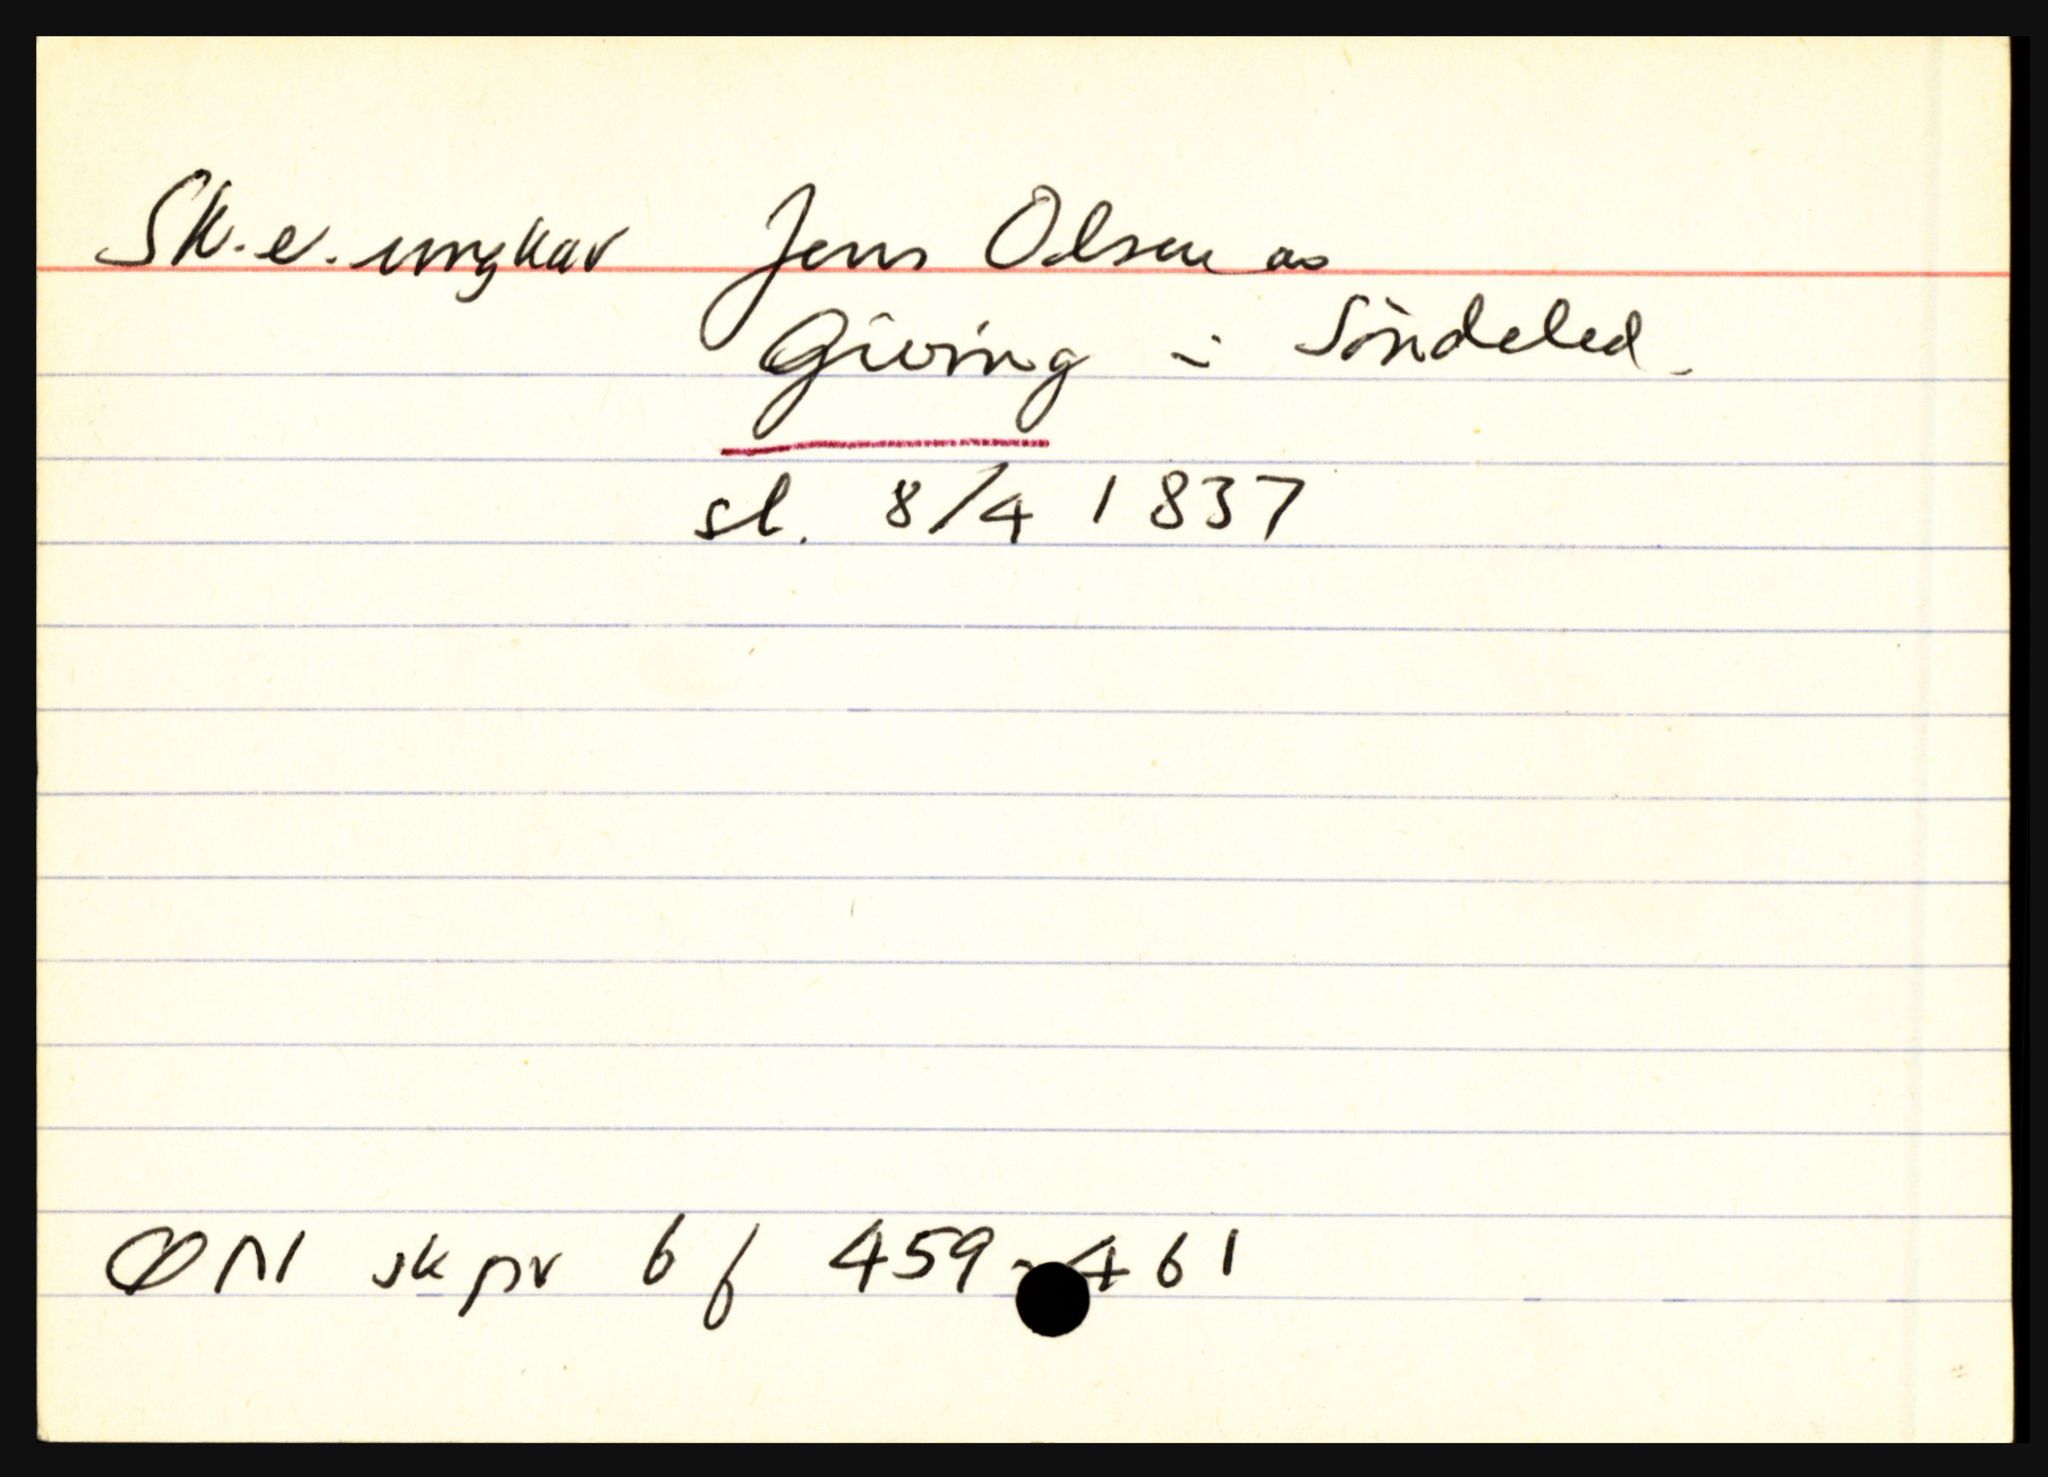 Sk. e. ungkar Jens Olsen as
Giving i Söndeled.
sl. 8/4 1837
ØN skpr 6 f 459-461